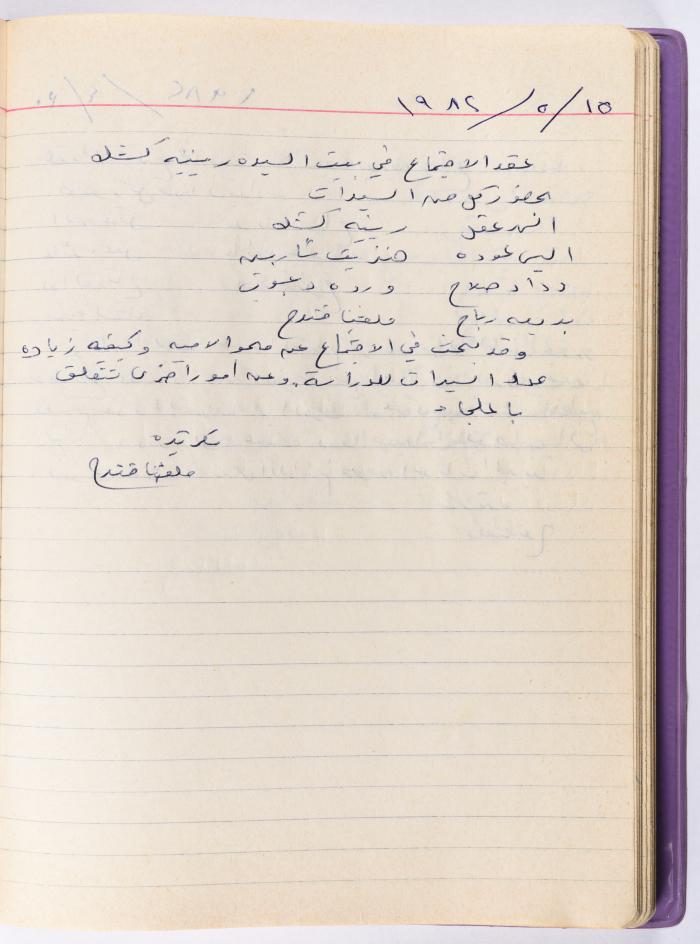 ١٥/٥/١٩٨٢
عقد الاجتماع في بيت السيده رينيه كشك
بحضور كل من السيدات
انس عقل رينيه كشك
اليس عوده هنرييت شاربين
وداد صلاح ورده دعبوب
بديعه رباح ملفينا قندح
وقد بحث في الاجتماع عن محو الاميه وكيفيه زياده
عدد السيدات للدراسة. وعن امور اخرى تتعلق
باعلجا.
سكرتيره
ملفينا قندح